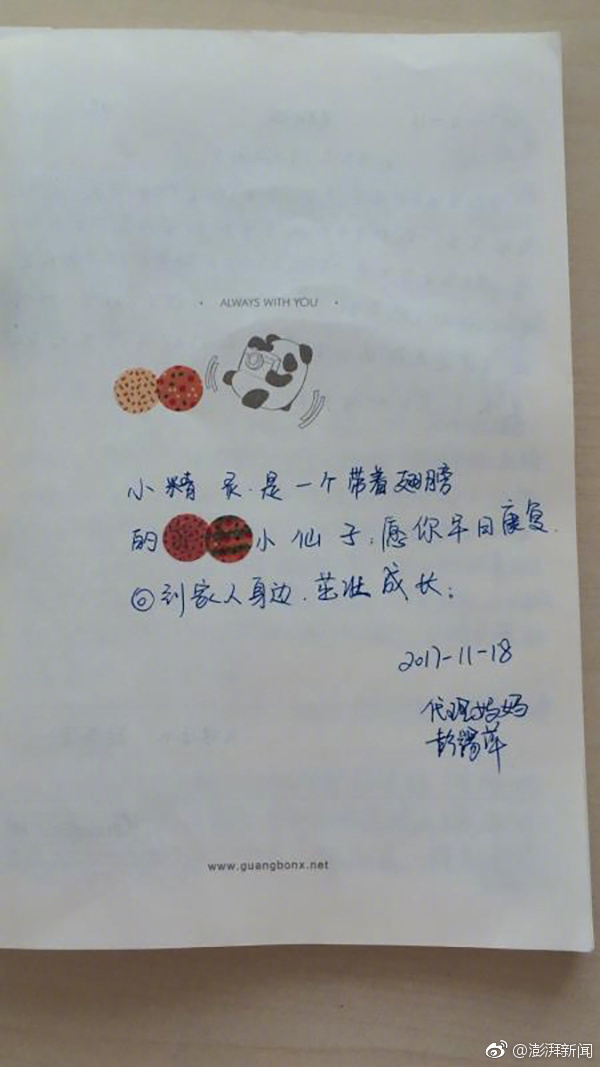 · ALWAYS WITH YOU ·
小精灵.是一个带着翅膀
的小仙子,愿你早日康复.
回到家人身边.茁壮成长;
2017-11-18
代理妈妈
www.guangbonx.net
@澎湃新闻